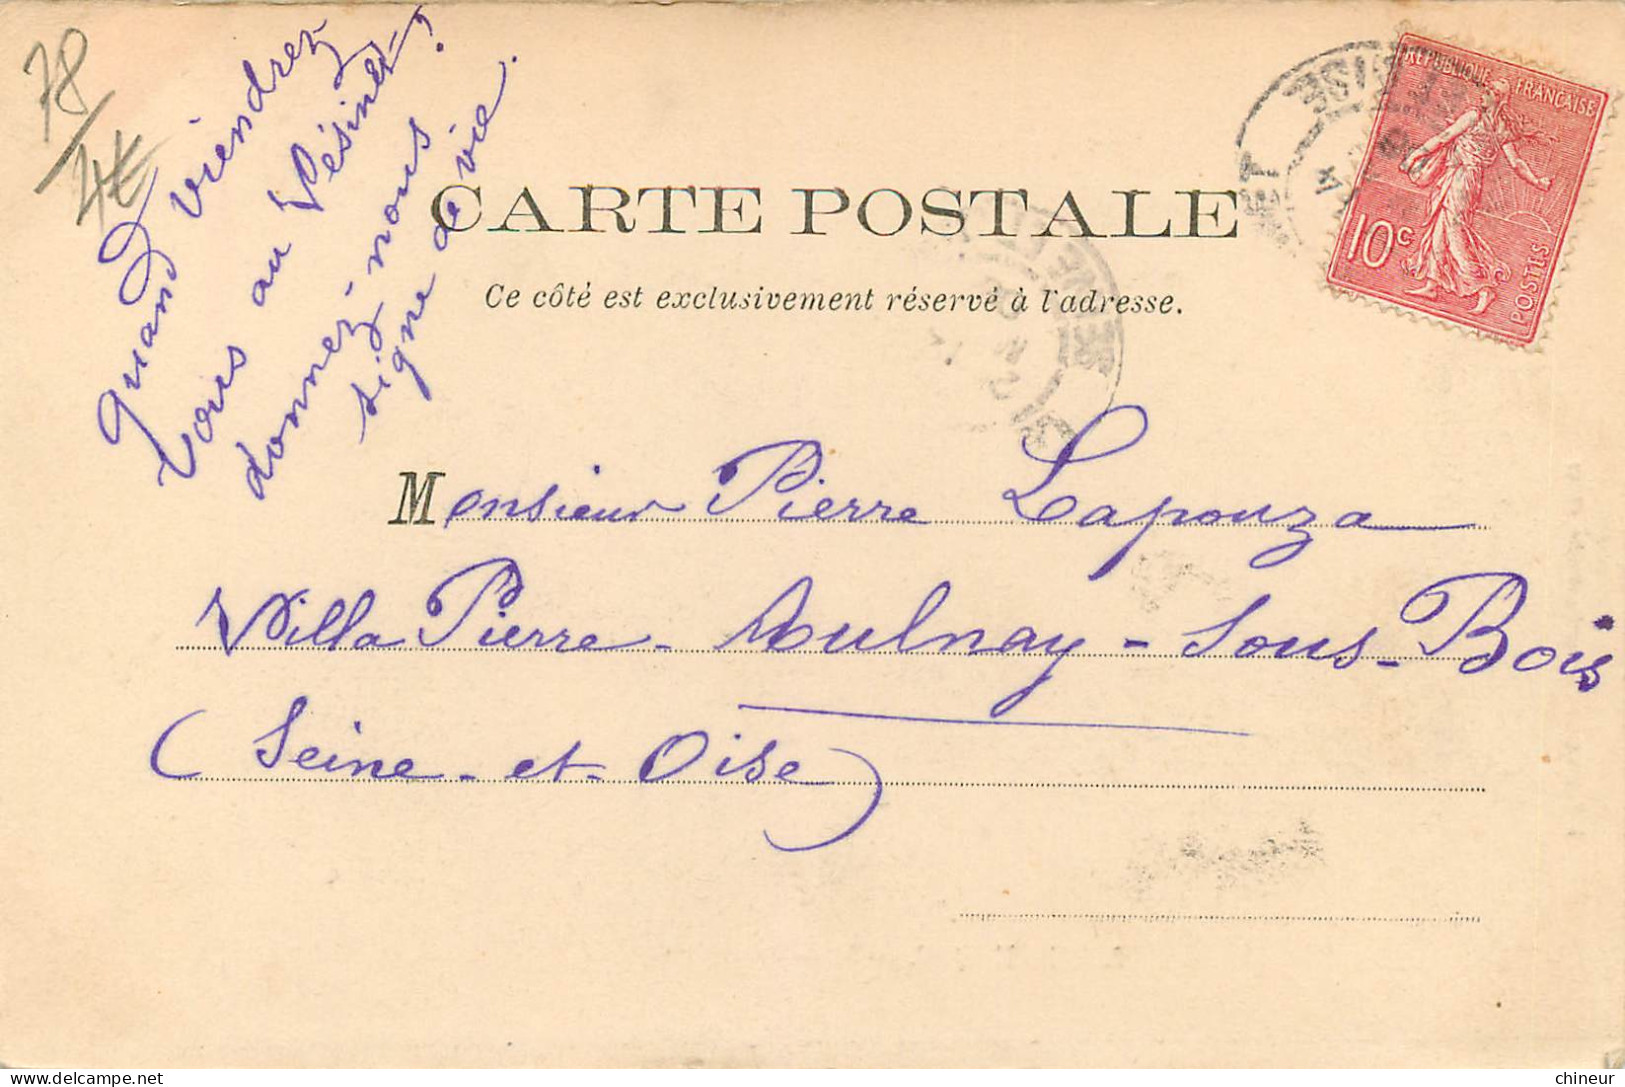 78/4€
Quand viendrez
vous au Vésinet-?
donnez-nous
signe de vie.
RÉPUBLIQUE FRANÇAISE
10c
POSTES
CARTE POSTALE
Ce côté est exclusivement réservé à l'adresse.
Monsieur Pierre Lapouza
Villa Pierre - Aulnay - Sous - Bois
(Seine - et - Oise)
chineur